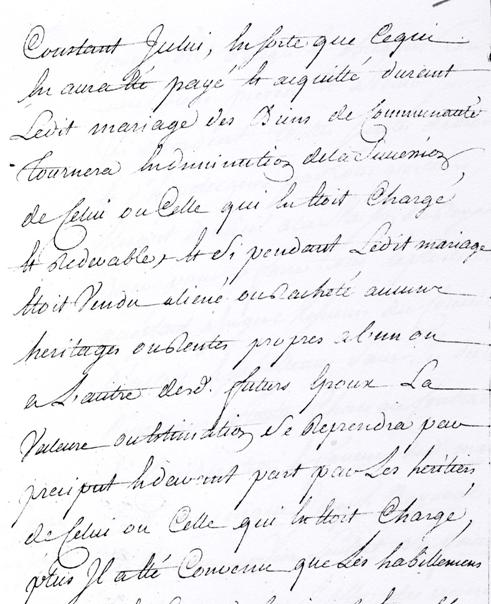 Constant Jcelui, En sorte que Cequi
En aura Eté payé Et acquitté durant
Ledit mariage des Biens de Communauté
Tournera Endiminution dela
de Celui ou Celle qui En Etoit Chargé
Et Redevable, Et Si pendant Ledit mariage
Etoit Vendu aliené ou Racheté aucuns
heritages ou Rentes propres a l'un ou
a L'autre desd. futurs Epoux La
Valeure ou Estimation Se Reprendra par
preciput Endevant part par Les heritiers
de Celui ou Celle qui En Etoit Chargé,
plus Jl a Eté Convenu que Les habillemens